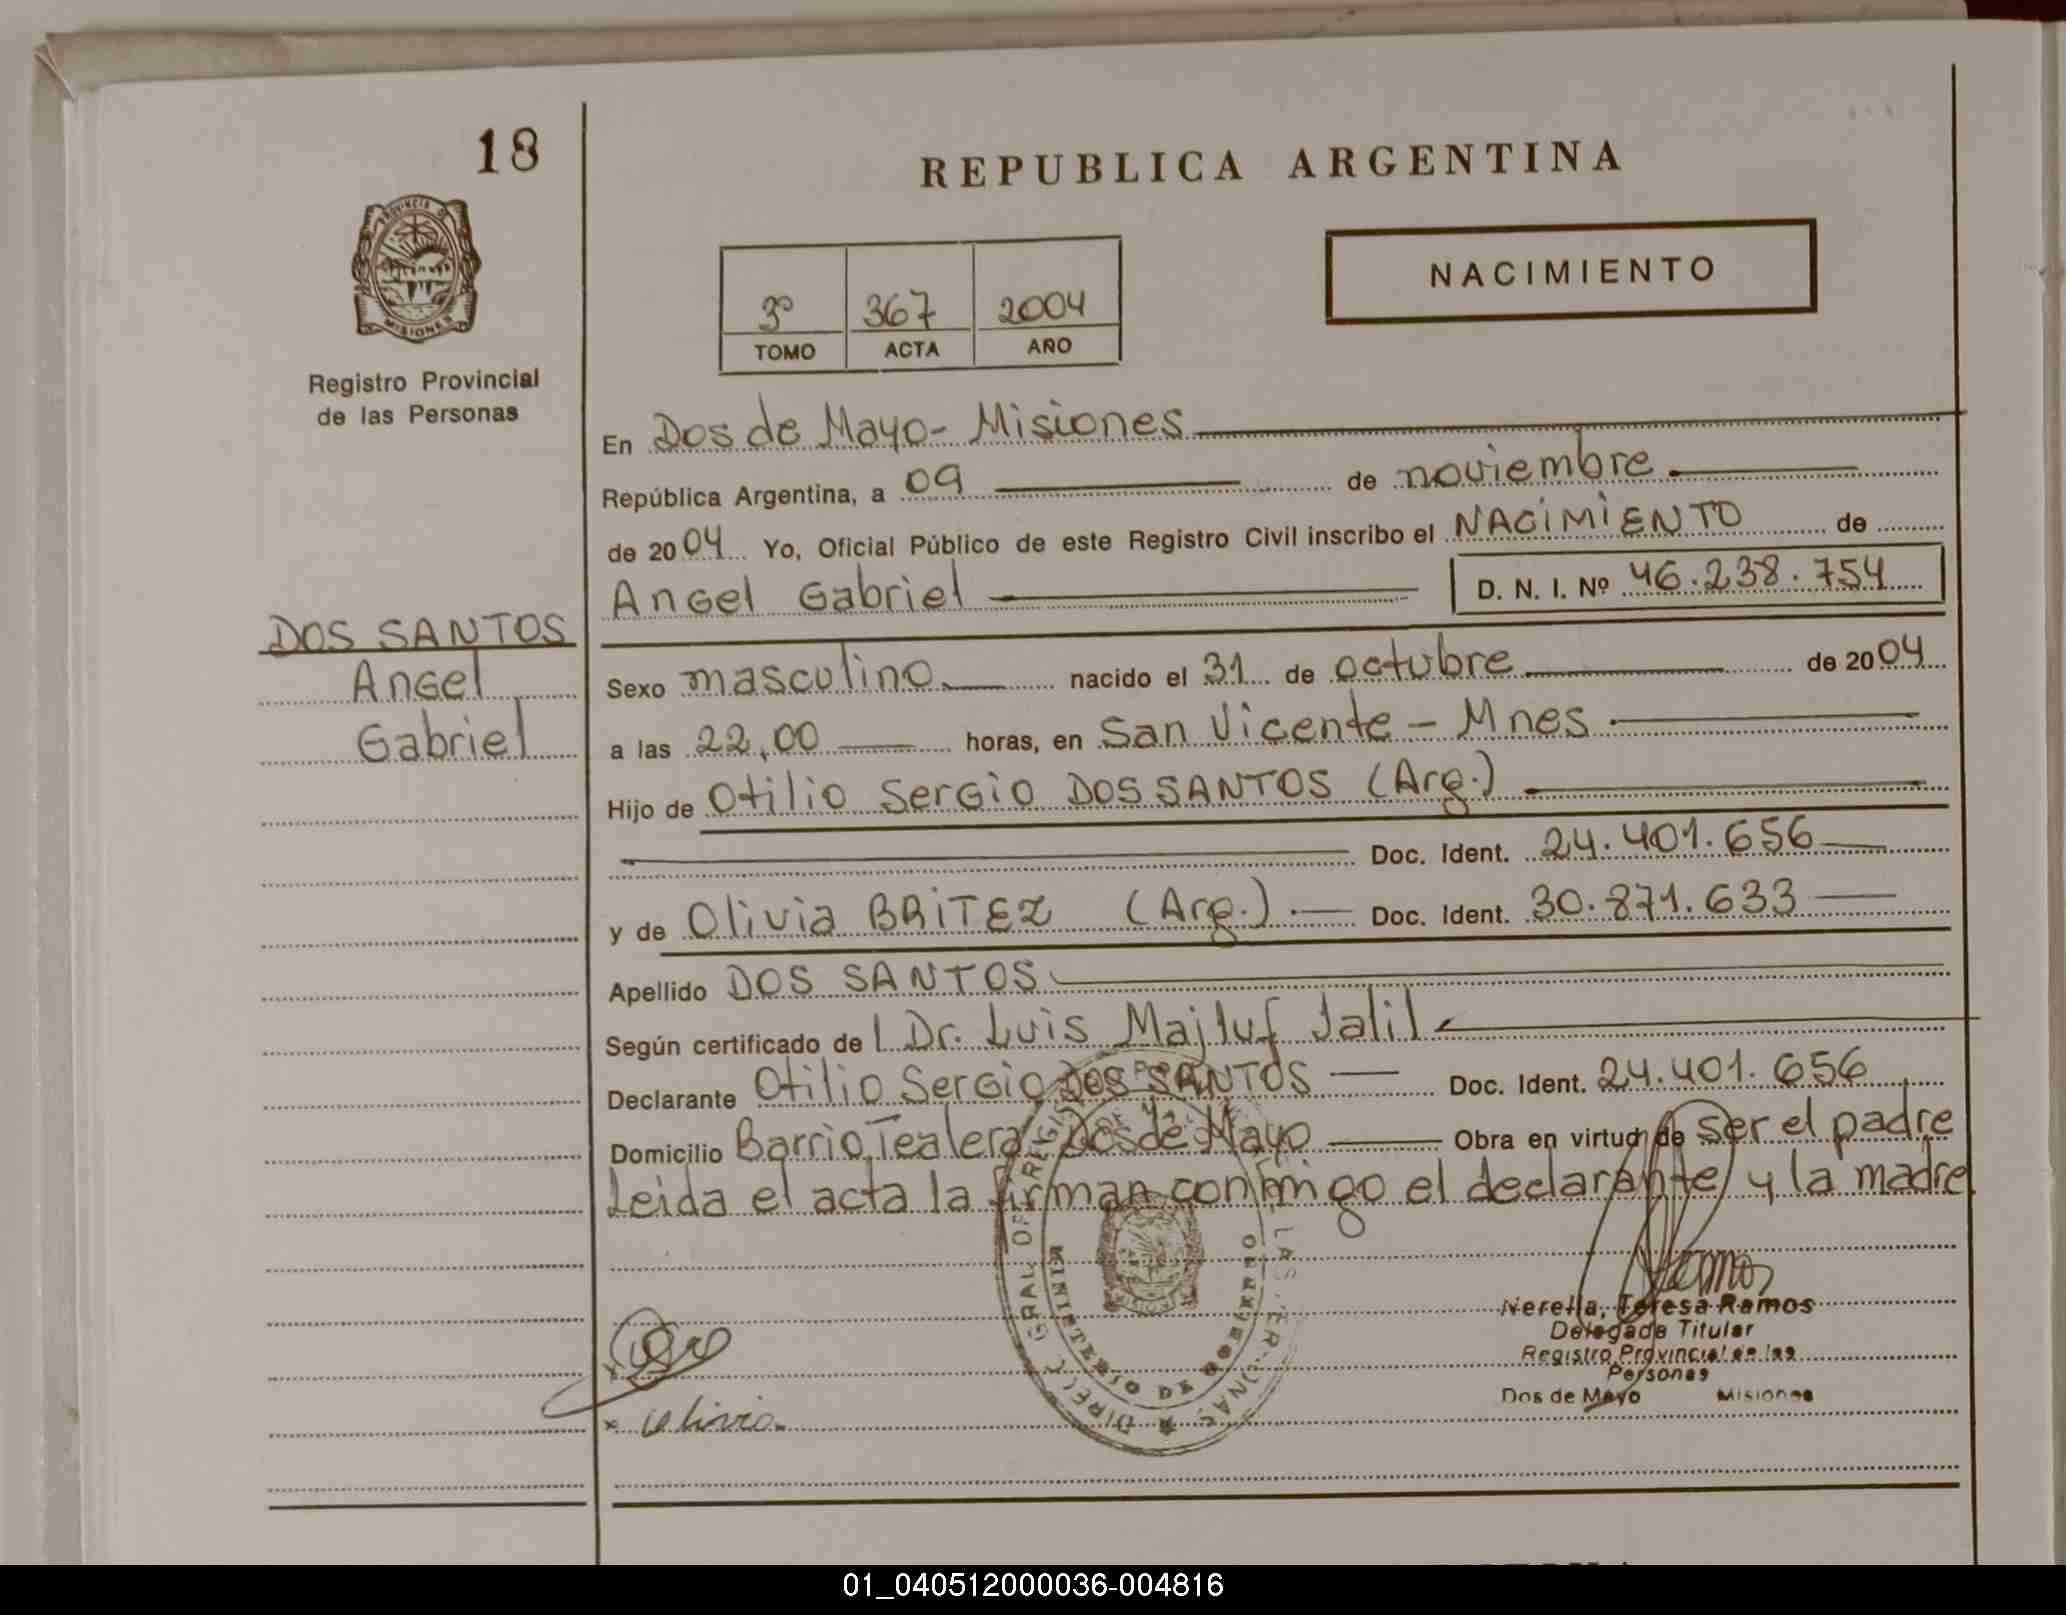 18
REPUBLICA ARGENTINA
PROVINCIA DE
MISIONES
NACIMIENTO
3º 367 2004
TOMO ACTA AÑO
Registro Provincial
de las Personas
En Dos de Mayo - Misiones
República Argentina, a 09 de noviembre
de 2004 Yo, Oficial Público de este Registro Civil inscribo el NACIMIENTO de
Angel Gabriel D. N. I. Nº 46.238.754
DOS SANTOS
Angel
Gabriel
Sexo masculino nacido el 31 de octubre de 2004
a las 22,00 horas, en San Vicente - Mnes
Hijo de Otilio Sergio DOS SANTOS (Arg.)
Doc. Ident. 24.401.656
y de Olivia BRITEZ (Arg.) Doc. Ident. 30.871.633
Apellido DOS SANTOS
Según certificado de l Dr. Luis Majluf Jalil
Declarante Otilio Sergio DOS SANTOS Doc. Ident. 24.401.656
Domicilio Barrio Tealera Dos de Mayo Obra en virtud de ser el padre
Leida el acta la firman conmigo el declarante y la madre
MINISTERIO DE GOBIERNO
Ramos
Nerella, Teresa Ramos
Delegada Titular
Registro Provincial de las
Personas
Dos de Mayo Misiones
x
x Olivia
01_040512000036-004816